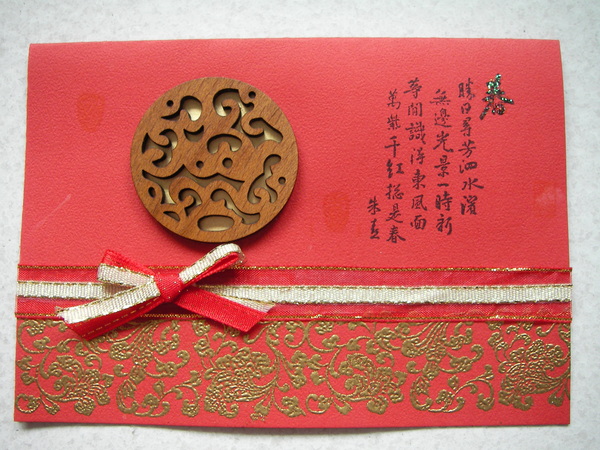 勝日尋芳泗水濱
無邊光景一時新
等閒識得東風面
萬紫千紅總是春
朱熹